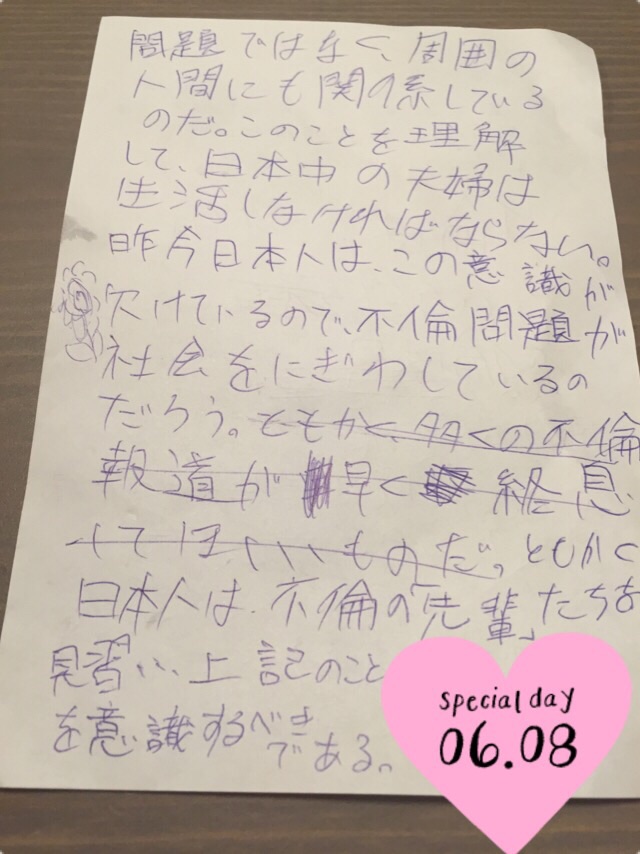 問題ではなく、周囲の
人間にも関係している
のだ。このことを理解
して、日本中の夫婦は
生活しなければならない。
昨今日本人は、この意識が
欠けているので、不倫問題が
社会をにぎわしているの
だろう。ともかく、多くの不倫
報道が早く終息
してほしいものだ。ともかく
日本人は、不倫の「先輩」たちを
見習い、上記のこと
を意識するべき
である。
special day
06.08